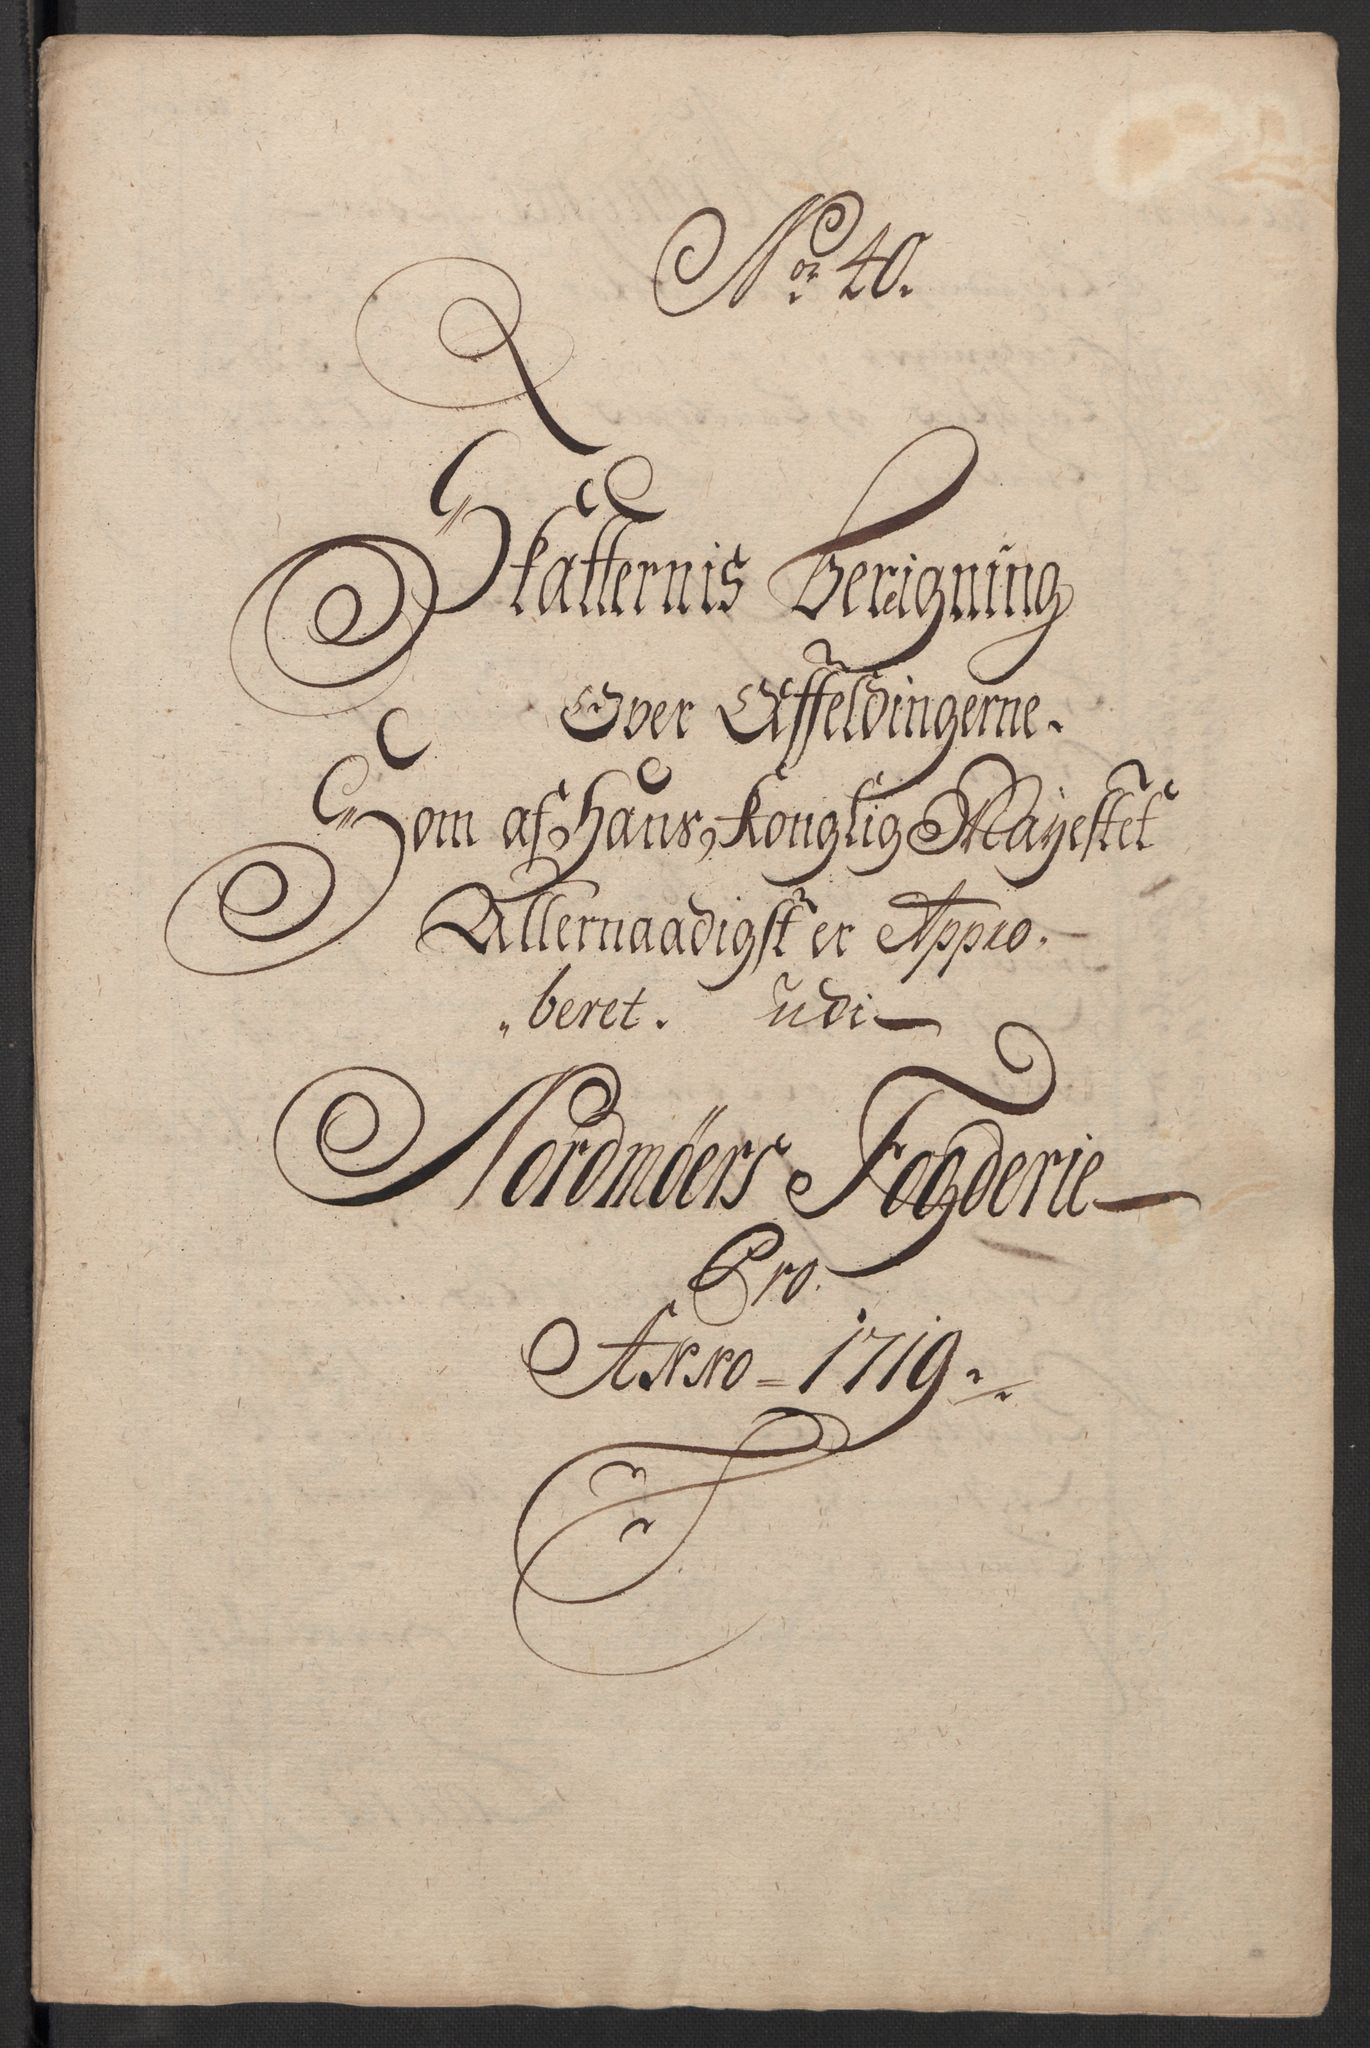 No: 40.
Skatternis Berigning
Over Affeldingerne.
Som af Hans Konglig Mayestet
Allernaadigst er Appro-
"beret. udi
Nordmöers Fogderie
Pro.
Anno = 1719.